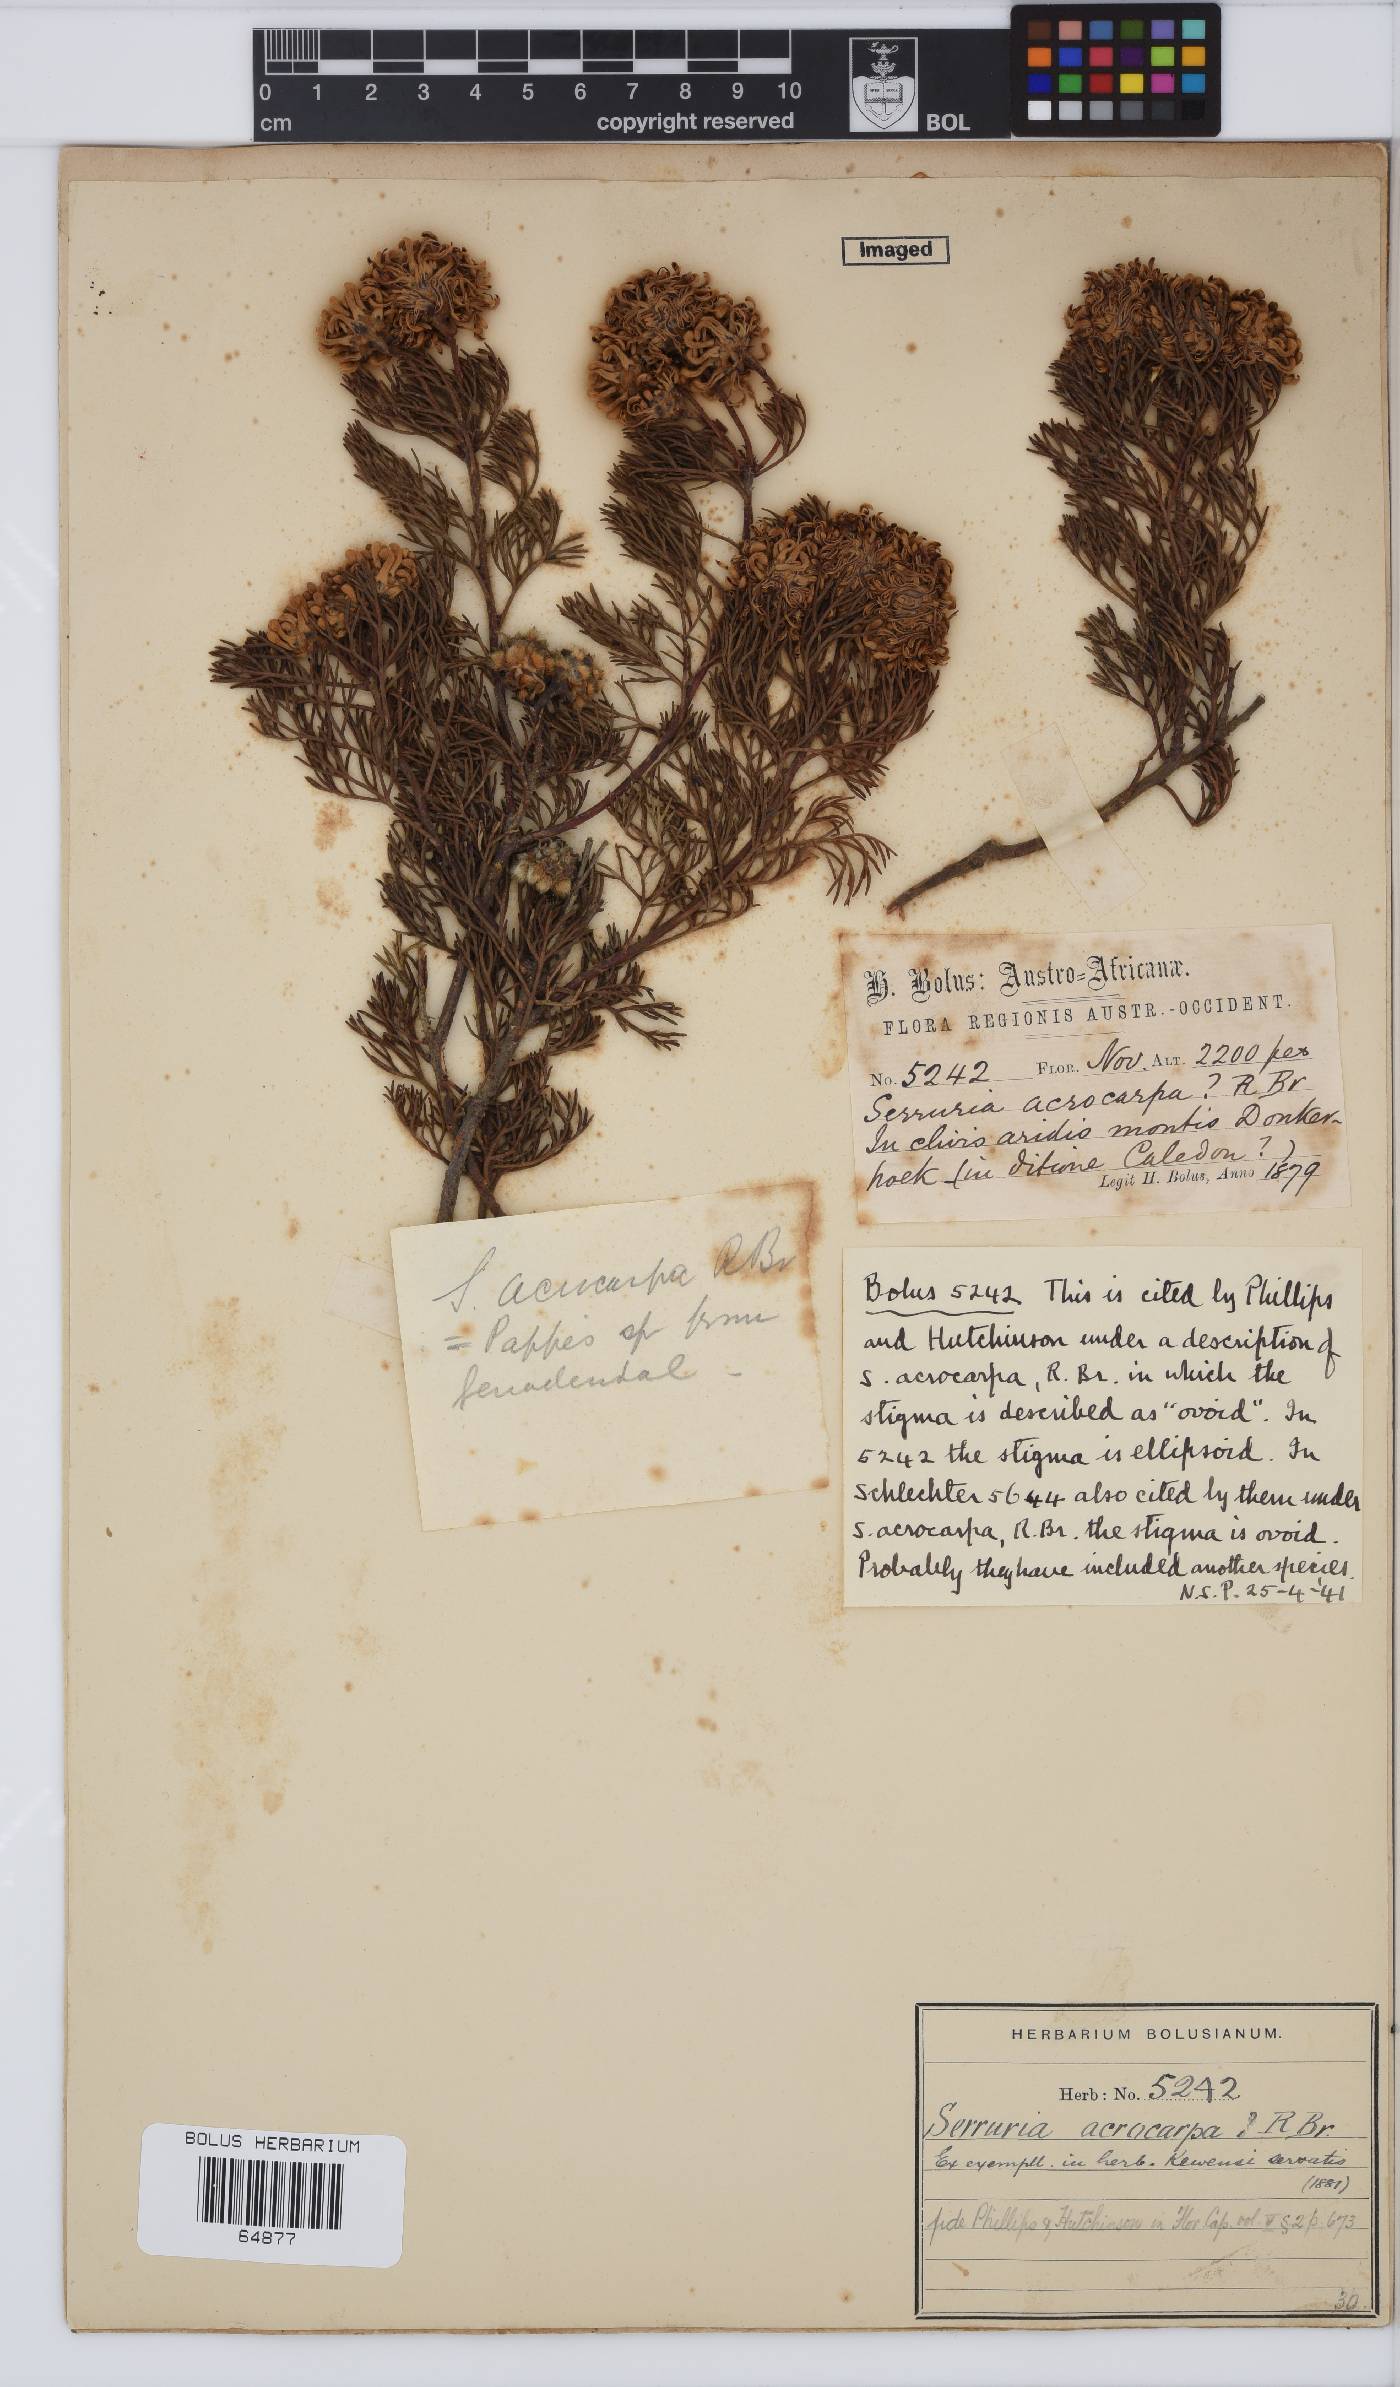 0 1 2 3 4 5 6 7 8 9 10
cm copyright reserved
BOL
Imaged
H. Bolus: Austro-Africanæ.
FLORA REGIONIS AUSTR.-OCCIDENT.
No. 5242 FLOR. Nov. ALT. 2200 ped
Serruria acrocarpa? R Br
In clivis aridis montis Donker-
hoek (in ditione Caledon?)
Legit H. Bolus, Anno 1879
S. acrocarpa R Br
= Pappes sp from
Bolus 5242 This is cited by Phillips
and Hutchinson under a description of
S. acrocarpa, R. Br. in which the
stigma is described as "ovoid". In
5242 the stigma is ellipsoid. In
Schlechter 5644 also cited by them under
S. acrocarpa, R. Br. the stigma is ovoid.
Probably they have included another species.
N.S.P. 25-4-41
HERBARIUM BOLUSIANUM.
Herb: No. 5242
Serruria acrocarpa? R Br.
Ex exempll. in herb. Kewensi servatis
(1881)
fide Phillips & Hutchinson in Flor. Cap. vol V §2 p. 673
30.
BOLUS HERBARIUM
64877